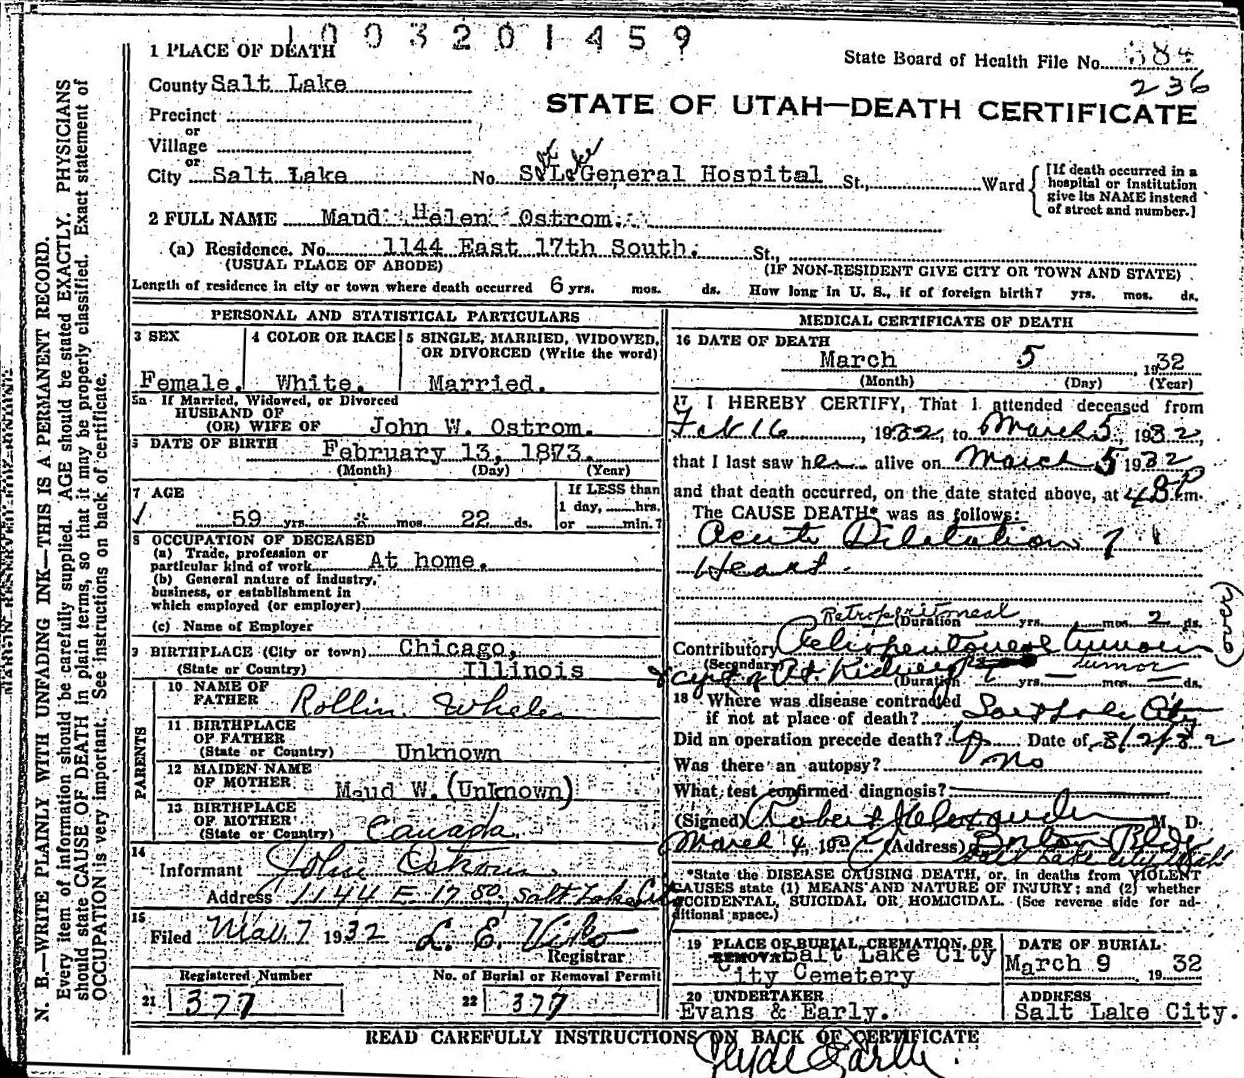 1003201459
1 PLACE OF DEATH
State Board of Health File No. 384
236
County Salt Lake
STATE OF UTAH—DEATH CERTIFICATE
Precinct
or
Village
or
City Salt Lake No. S. L. General Hospital St., Ward
Salt Lake
[If death occurred in a hospital or institution give its NAME instead of street and number.]
2 FULL NAME Maud Helen Ostrom.
(a) Residence. No. 1144 East 17th South. St.,
(USUAL PLACE OF ABODE) (IF NON-RESIDENT GIVE CITY OR TOWN AND STATE)
Length of residence in city or town where death occurred 6 yrs. mos. ds. How long in U. S., if of foreign birth? yrs. mos. ds.
PERSONAL AND STATISTICAL PARTICULARS
3 SEX 4 COLOR OR RACE 5 SINGLE, MARRIED, WIDOWED, OR DIVORCED (Write the word)
Female. White. Married.
5a If Married, Widowed, or Divorced
HUSBAND OF
(OR) WIFE OF John W. Ostrom.
6 DATE OF BIRTH February 13, 1873.
(Month) (Day) (Year)
7 AGE
59 yrs. mos. 22 ds.
If LESS than
1 day, hrs.
or min.?
8 OCCUPATION OF DECEASED
(a) Trade, profession or
particular kind of work At home.
(b) General nature of industry,
business, or establishment in
which employed (or employer)
(c) Name of Employer
9 BIRTHPLACE (City or town) Chicago,
(State or Country) Illinois
PARENTS
10 NAME OF
FATHER Rollin
11 BIRTHPLACE
OF FATHER
(State or Country) Unknown
12 MAIDEN NAME
OF MOTHER Maud W. (Unknown)
13 BIRTHPLACE
OF MOTHER
(State or Country) Canada
14
Informant John Ostrom
Address 1144 E 17 So. Salt Lake City
15
Filed Mar. 7 1932
Registrar
Registered Number No. of Burial or Removal Permit
21 377 22 377
MEDICAL CERTIFICATE OF DEATH
16 DATE OF DEATH
March 5 1932
(Month) (Day) (Year)
17 I HEREBY CERTIFY, That I attended deceased from
Feb 16, 1932, to March 5, 1932,
that I last saw her alive on March 5 1932
and that death occurred, on the date stated above, at m.
The CAUSE DEATH* was as follows:
Acute Dilatation
Heart.
Retroperitoneal
(Duration yrs. mos. 2 ds.
Contributory Retroperitoneal tumor
(Secondary) cyst of Rt. Kidney Tumor
(Duration yrs. mos. ds.
(over)
18 Where was disease contracted
if not at place of death? Salt Lake City
Did an operation precede death? Yes Date of
Was there an autopsy? No
What test confirmed diagnosis?
(Signed) Robert Alexander M. D.
March (Address) Boston Bldg
Salt Lake City Utah
*State the DISEASE CAUSING DEATH, or, in deaths from VIOLENT
CAUSES state (1) MEANS AND NATURE OF INJURY; and (2) whether
ACCIDENTAL, SUICIDAL OR HOMICIDAL. (See reverse side for additional space.)
19 PLACE OF BURIAL, CREMATION, OR
REMOVAL Salt Lake City
City Cemetery
DATE OF BURIAL
March 9 1932
20 UNDERTAKER
Evans & Early.
ADDRESS
Salt Lake City.
READ CAREFULLY INSTRUCTIONS ON BACK OF CERTIFICATE
N. B.—WRITE PLAINLY WITH UNFADING INK—THIS IS A PERMANENT RECORD.
Every item of information should be carefully supplied. AGE should be stated EXACTLY. PHYSICIANS
should state CAUSE OF DEATH in plain terms, so that it may be properly classified. Exact statement of
OCCUPATION is very important. See instructions on back of certificate.